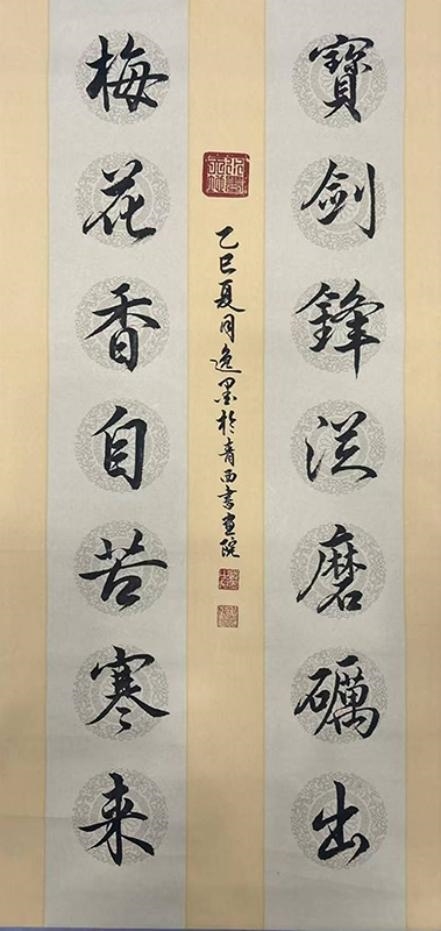 寶劍鋒從磨礪出
梅花香自苦寒来
乙巳夏月逸墨於青西書畫院